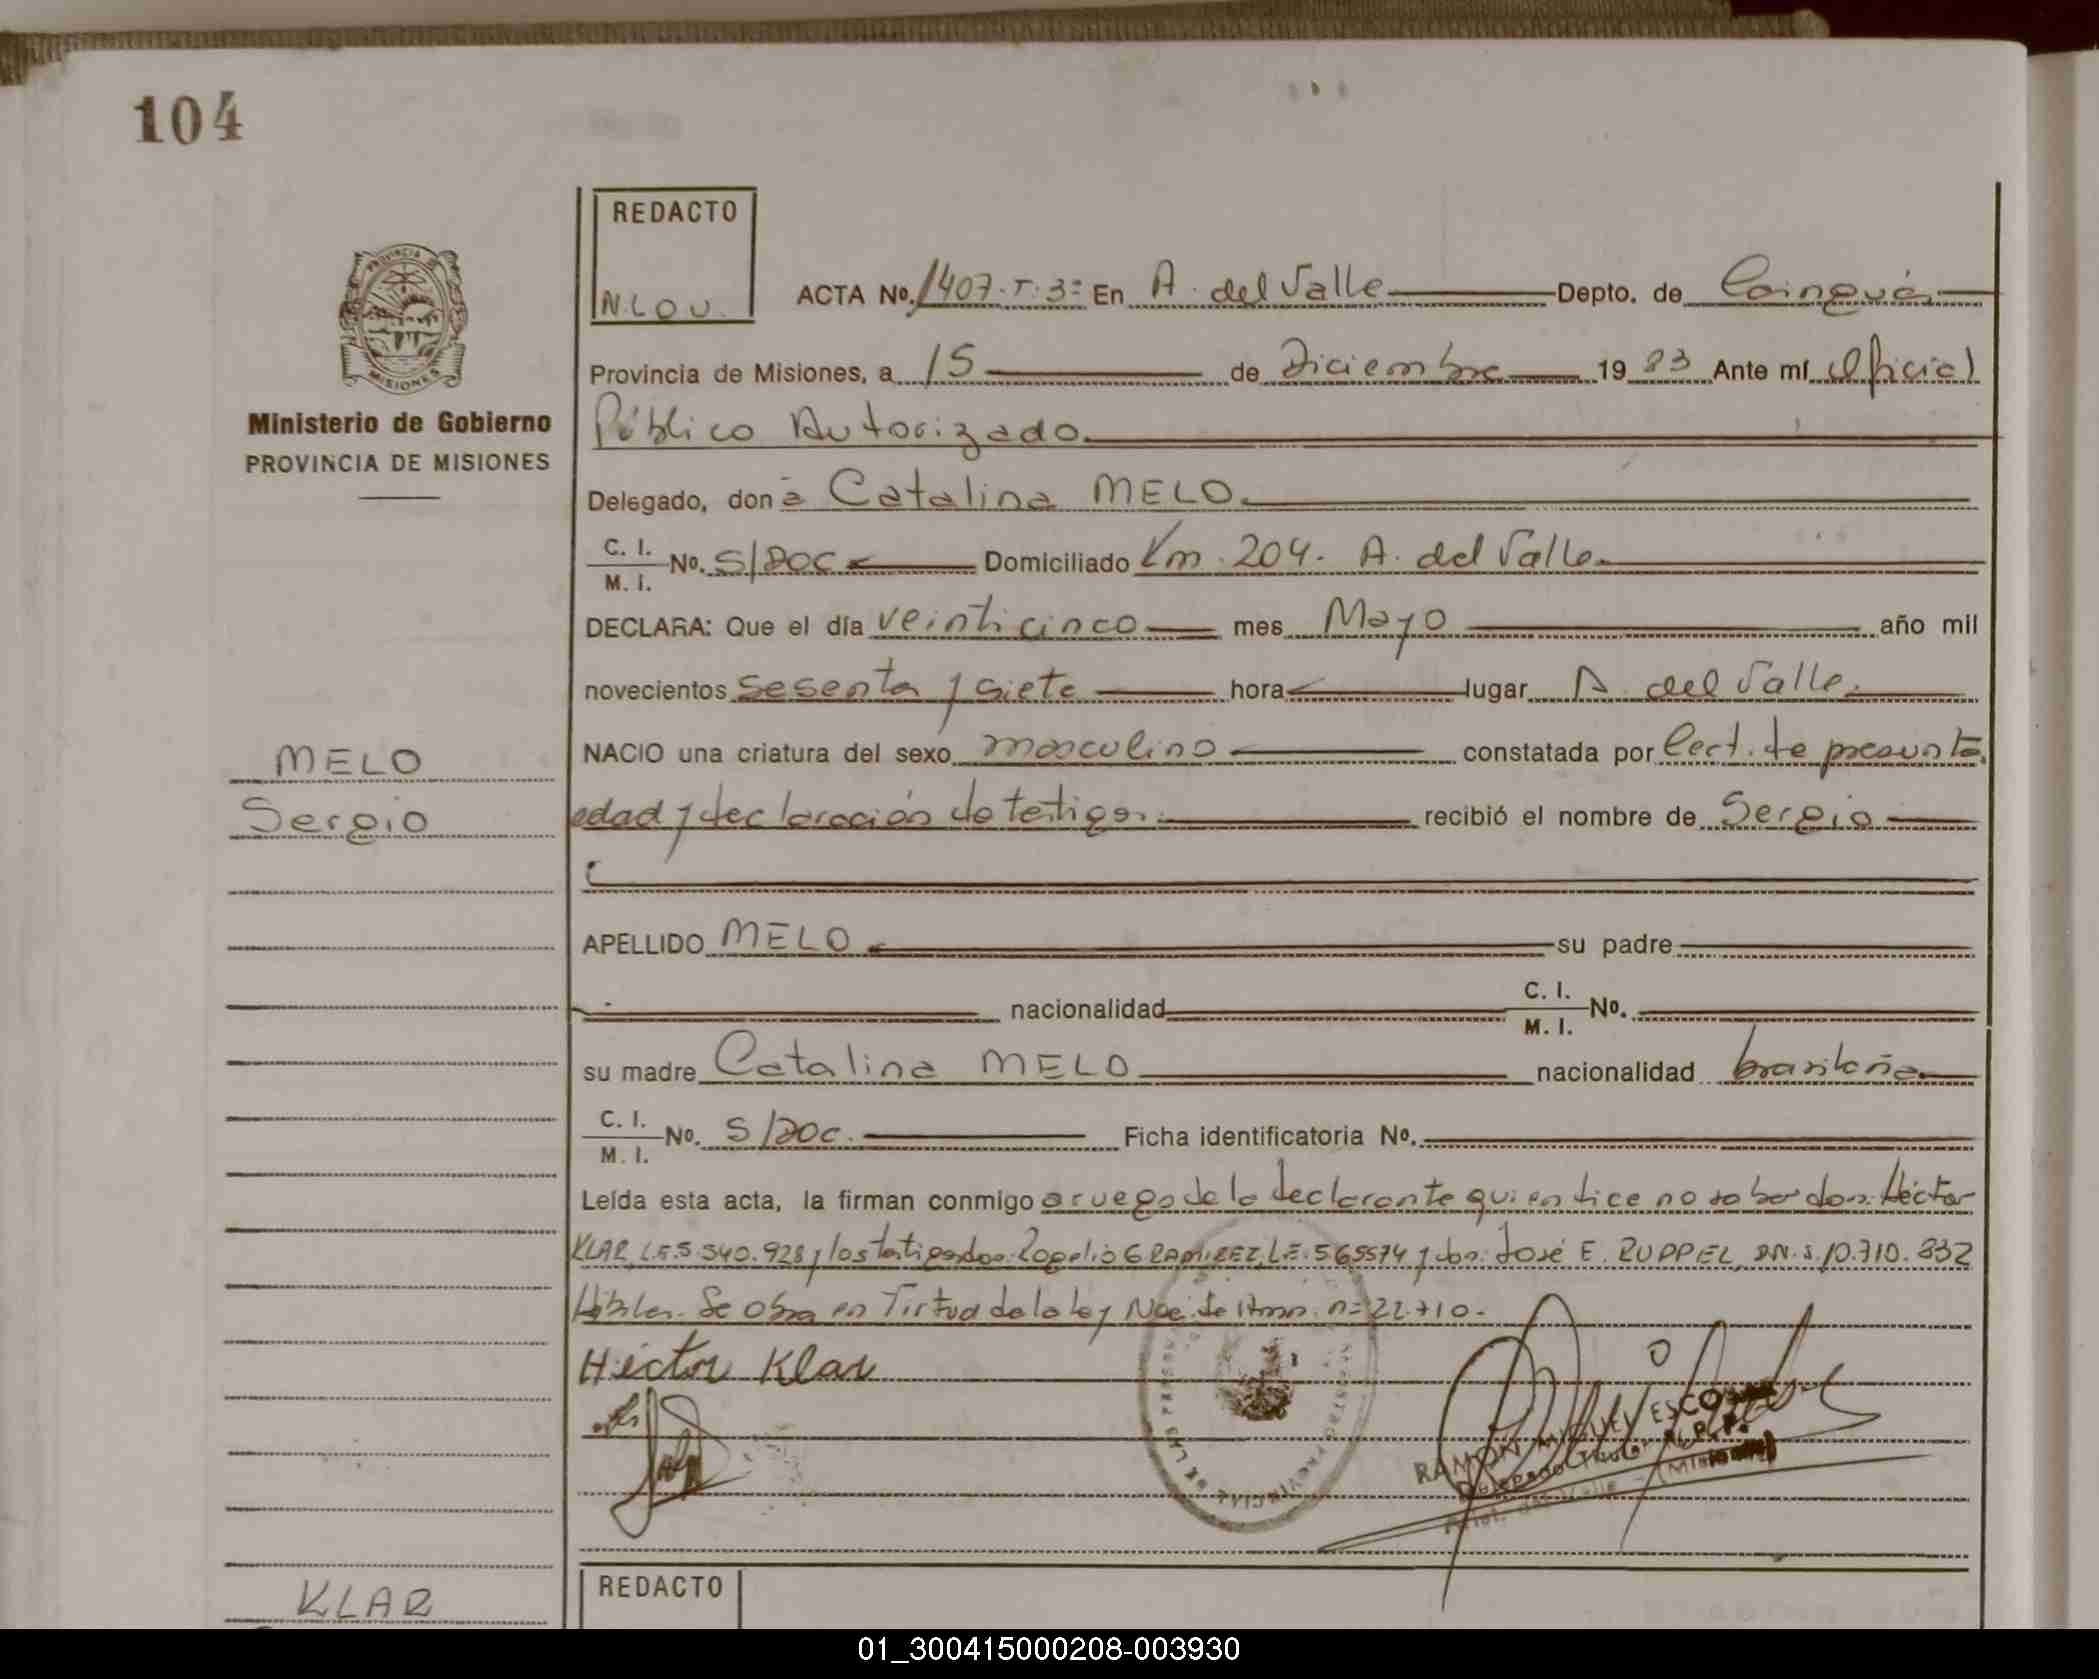 104
REDACTO
N.L.O.U.
ACTA No. 1407.T.3º En A. del Valle Depto. de Cainguás
Provincia de Misiones, a 15 de Diciembre 19 83 Ante mí Oficial
Público Autorizado
Delegado, don a Catalina MELO.
C. I.
M. I.
No. S/DOC Domiciliado Km. 204. A. del Valle.
DECLARA: Que el día veinticinco mes Mayo año mil
novecientos sesenta y siete hora lugar A. del Valle.
NACIO una criatura del sexo masculino constatada por Cert. de presunta
edad y declaración de testigos. recibió el nombre de Sergio
APELLIDO MELO su padre
nacionalidad C. I.
M. I. No.
su madre Catalina MELO nacionalidad brasileña
C. I.
M. I.
No. S/DOC. Ficha identificatoria No.
Leída esta acta, la firman conmigo a ruego de la declarante quien dice no saber don: Héctor
KLAR, L.E. 5.540.928 y los testigos don: Rogelio G RAMIREZ, L.E. 565574 y don: José E. RUPPEL, D.N.I. 10.710.832
Hábiles. Se obra en Virtud de la ley Nac. de nº 22.710.
Héctor Klar
RAMON MIGUEL
Delegado Titular R.P.P.
Ministerio de Gobierno
PROVINCIA DE MISIONES
MELO
Sergio
KLAR
REDACTO
PROVINCIA DE
MISIONES
DE LAS PERSONAS
PROVINCIAL
01_300415000208-003930